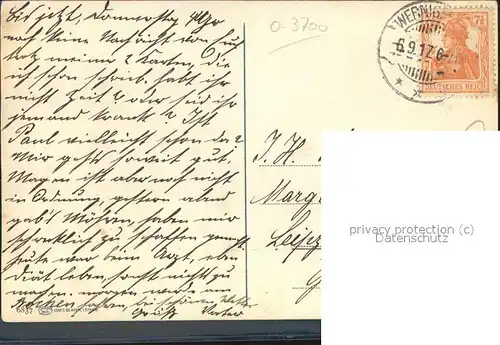 Bis jetzt, Donnerstag Abo
noch keine Nachricht von Euch
trotz meiner 2 Karten, die
ich schon schrieb, habt ihr
nicht Zeit? oder seid ihr
jemand krank? Ist
Paul vielleicht schon da?
Mir gehts soweit gut,
Magen ist aber noch nicht
in Ordnung, gestern abend
gab's Möhren, haben mir
schrecklich zu schaffen gemacht
heute war beim Arzt, eben
Diät leben, sonst nichts zu
machen. morgen werde am
Brocken fahren, bei schönem Wetter
Gruß Vater
O-3700
WERNIG
6.9.17. 6-7
7½
DEUTSCHES REICH
J. H.
Marg
Leipz
privacy protection
Datenschutz